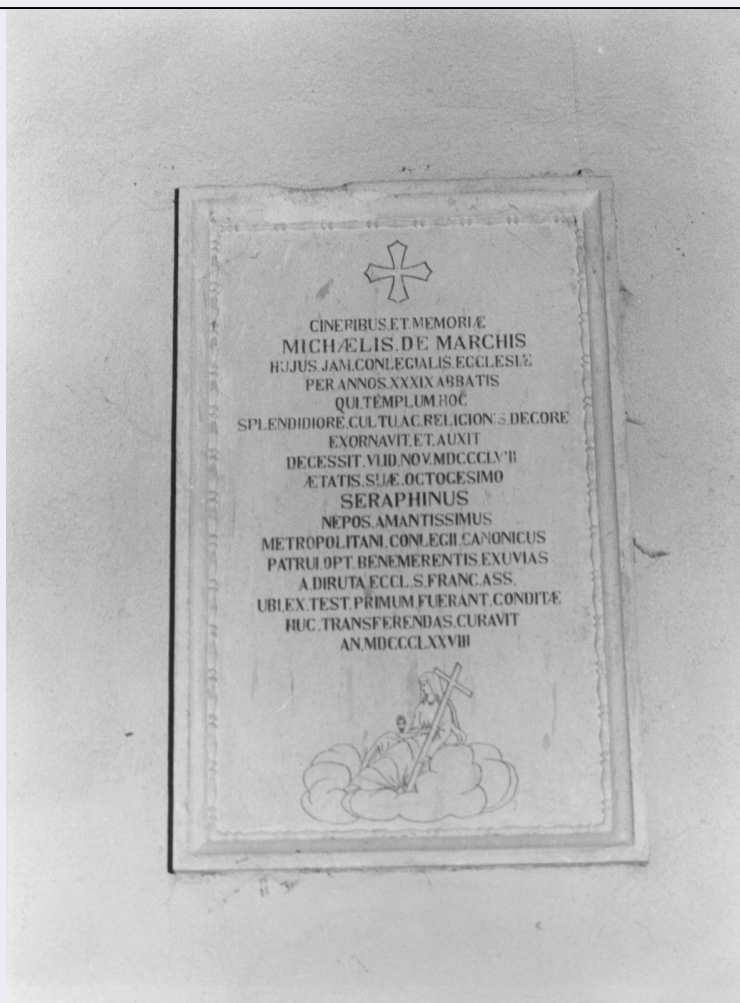 CINERIBUS.ET.MEMORIÆ
MICHÆLIS.DE MARCHIS
HUJUS.JAM.CONLEGIALIS.ECCLESIÆ
PER ANNOS.XXXIX ABBATIS
QUI.TEMPLUM HOC
SPLENDIDIORE.CULTU.AC.RELIGIONIS.DECORE
EXORNAVIT.ET.AUXIT
DECESSIT.VI.ID.NOV.
ÆTATIS.SUÆ.OCTOGESIMO
SERAPHINUS
NEPOS.AMANTISSIMUS
METROPOLITANI.CONLEGII.CANONICUS
PATRUI.OPT.BENEMERENTIS.EXUVIAS
A.DIRUTA ECCL.S.FRANC.ASS.
UBI.EX.TEST.PRIMUM.FUERANT.CONDITÆ
HUC.TRANSFERENDAS.CURAVIT
AN.MDCCCLXXVIII